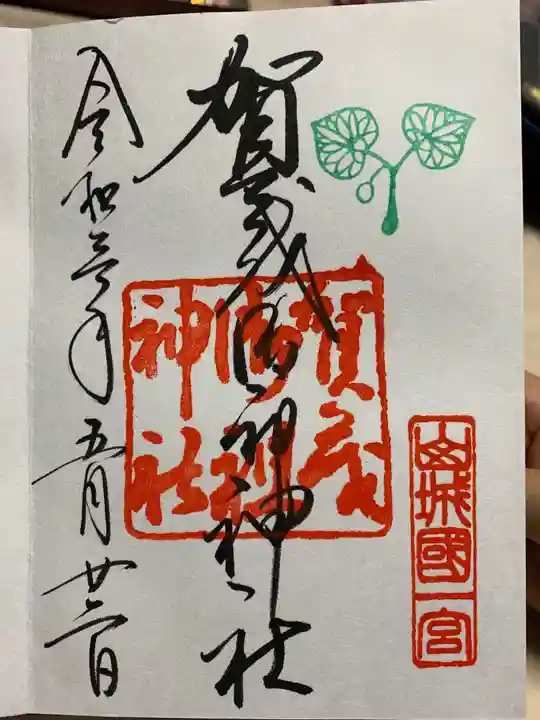 山城國一宮
賀茂御祖神社
賀茂
御祖
神社
令和三年五月廿三日